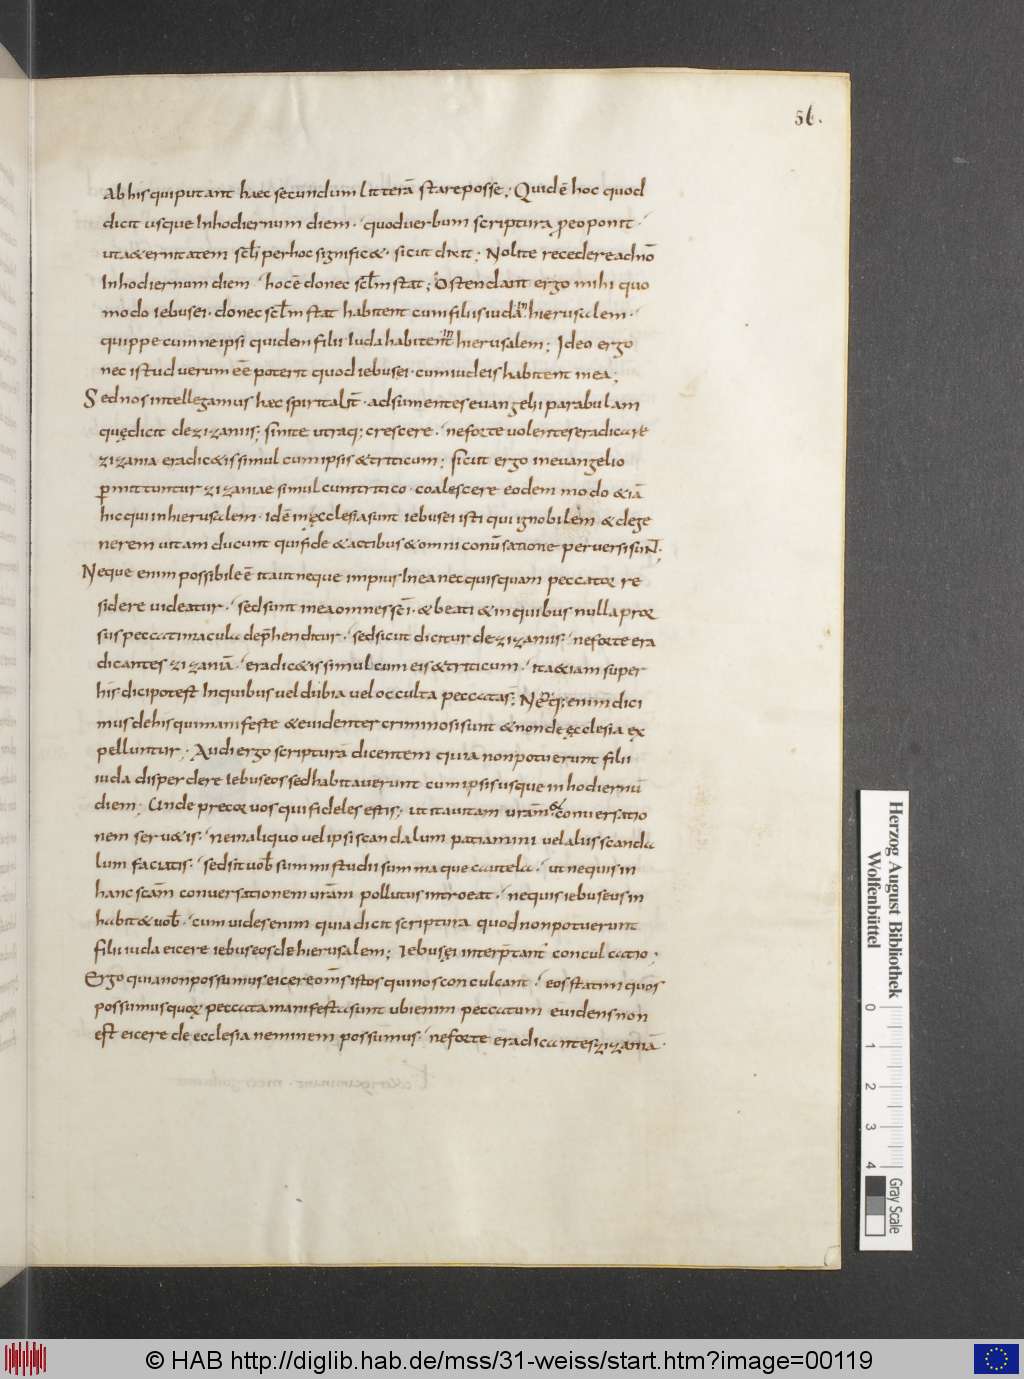 56.
Ab his qui putant haec secundum litterā stare posse; Quid ē hoc quod
dicit usque In hodiernum diem · quod uerbum scriptura p eo ponit ·
ut a&ernitatem scł̄i per hoc signific& · sicut dixit; Nolite recedere ad nō
In hodiernum diem · hoc ē donec scł̄m stat; Ostendant ergo mihi quo
modo iebusei · donec scł̄m stat habitent cum filiis iuda in hierusalem ·
quippe cum ne ipsi quidem filii Iuda habitent in hierusalem; Ideo ergo
nec istud uerum eē poterit quod iebusei · cum iudeis habitent in ea;
Sed nos intellegamus hęc spiritalit̄ · adsumentes euangelii parabulam
quę dicit de zizaniis; sinite utraq; crescere · ne forte uolentes eradicare
zizania eradic&is simul cum ipsis & triticum; sicut ergo in euangelio
p̱mittuntur zizaniae simul cum tritico · coalescere eodem modo &iā
hic qui in hierusalem · id ē in ęcclesia sunt iebusei isti qui ignobilem & dege
nerem uitam ducunt qui fide & actibus & omni conūsatione peruersi suN̄;
Neque enim possibile ē ita ut neque impius In ea nec quisquam peccator re
sidere uideatur · sed sunt in ea omnes sc̄i · & beati & in quibus nulla pror
sus peccati macula dep̄henditur · sed sicut dicitur de zizaniis · ne forte era
dicantes zizaniā · eradic&is simul cum eis & triticum · ita &iam super
his dici potest In quibus uel dubia uel occulta peccata s̄; Neq; enim dici
mus de his qui manifeste & euidenter criminosi sunt & non de ęcclesia ex
pelluntur; Audi ergo scripturā dicentem quia non potuerunt filii
iuda disperdere Iebuseos sed habitauerunt cum ipsis usque in hodiernū
diem; Unde precor uos qui fideles estis; ut ita uitam ur̄am & conuersatio
nem seru&is · ne in aliquo uel ipsi scandalum patiamini uel aliis scanda
lum faciatis · sed sit uob̄ summi studii summaque cautela · ut ne quis in
hanc sc̄am conuersationem ur̄am pollutus introeat · ne quis iebuseus in
habit& uob̄ · cum uides enim quia dicit scriptura quod non potuerunt
filii iuda eicere iebuseos de hierusalem; Iebusęi interp̄tant̄ conculcatio;
Ergo quia non possumus eicere om̄s istos qui nos conculcant · eos statim quos
possumus quorum peccata manifesta sunt ubi enim peccatum euidens non
est eicere de ecclesia neminem possumus · ne forte eradicantes zizaniā ·
Herzog August Bibliothek
Wolfenbüttel
0 1 2 3 4
Gray Scale
© HAB http://diglib.hab.de/mss/31-weiss/start.htm?image=00119